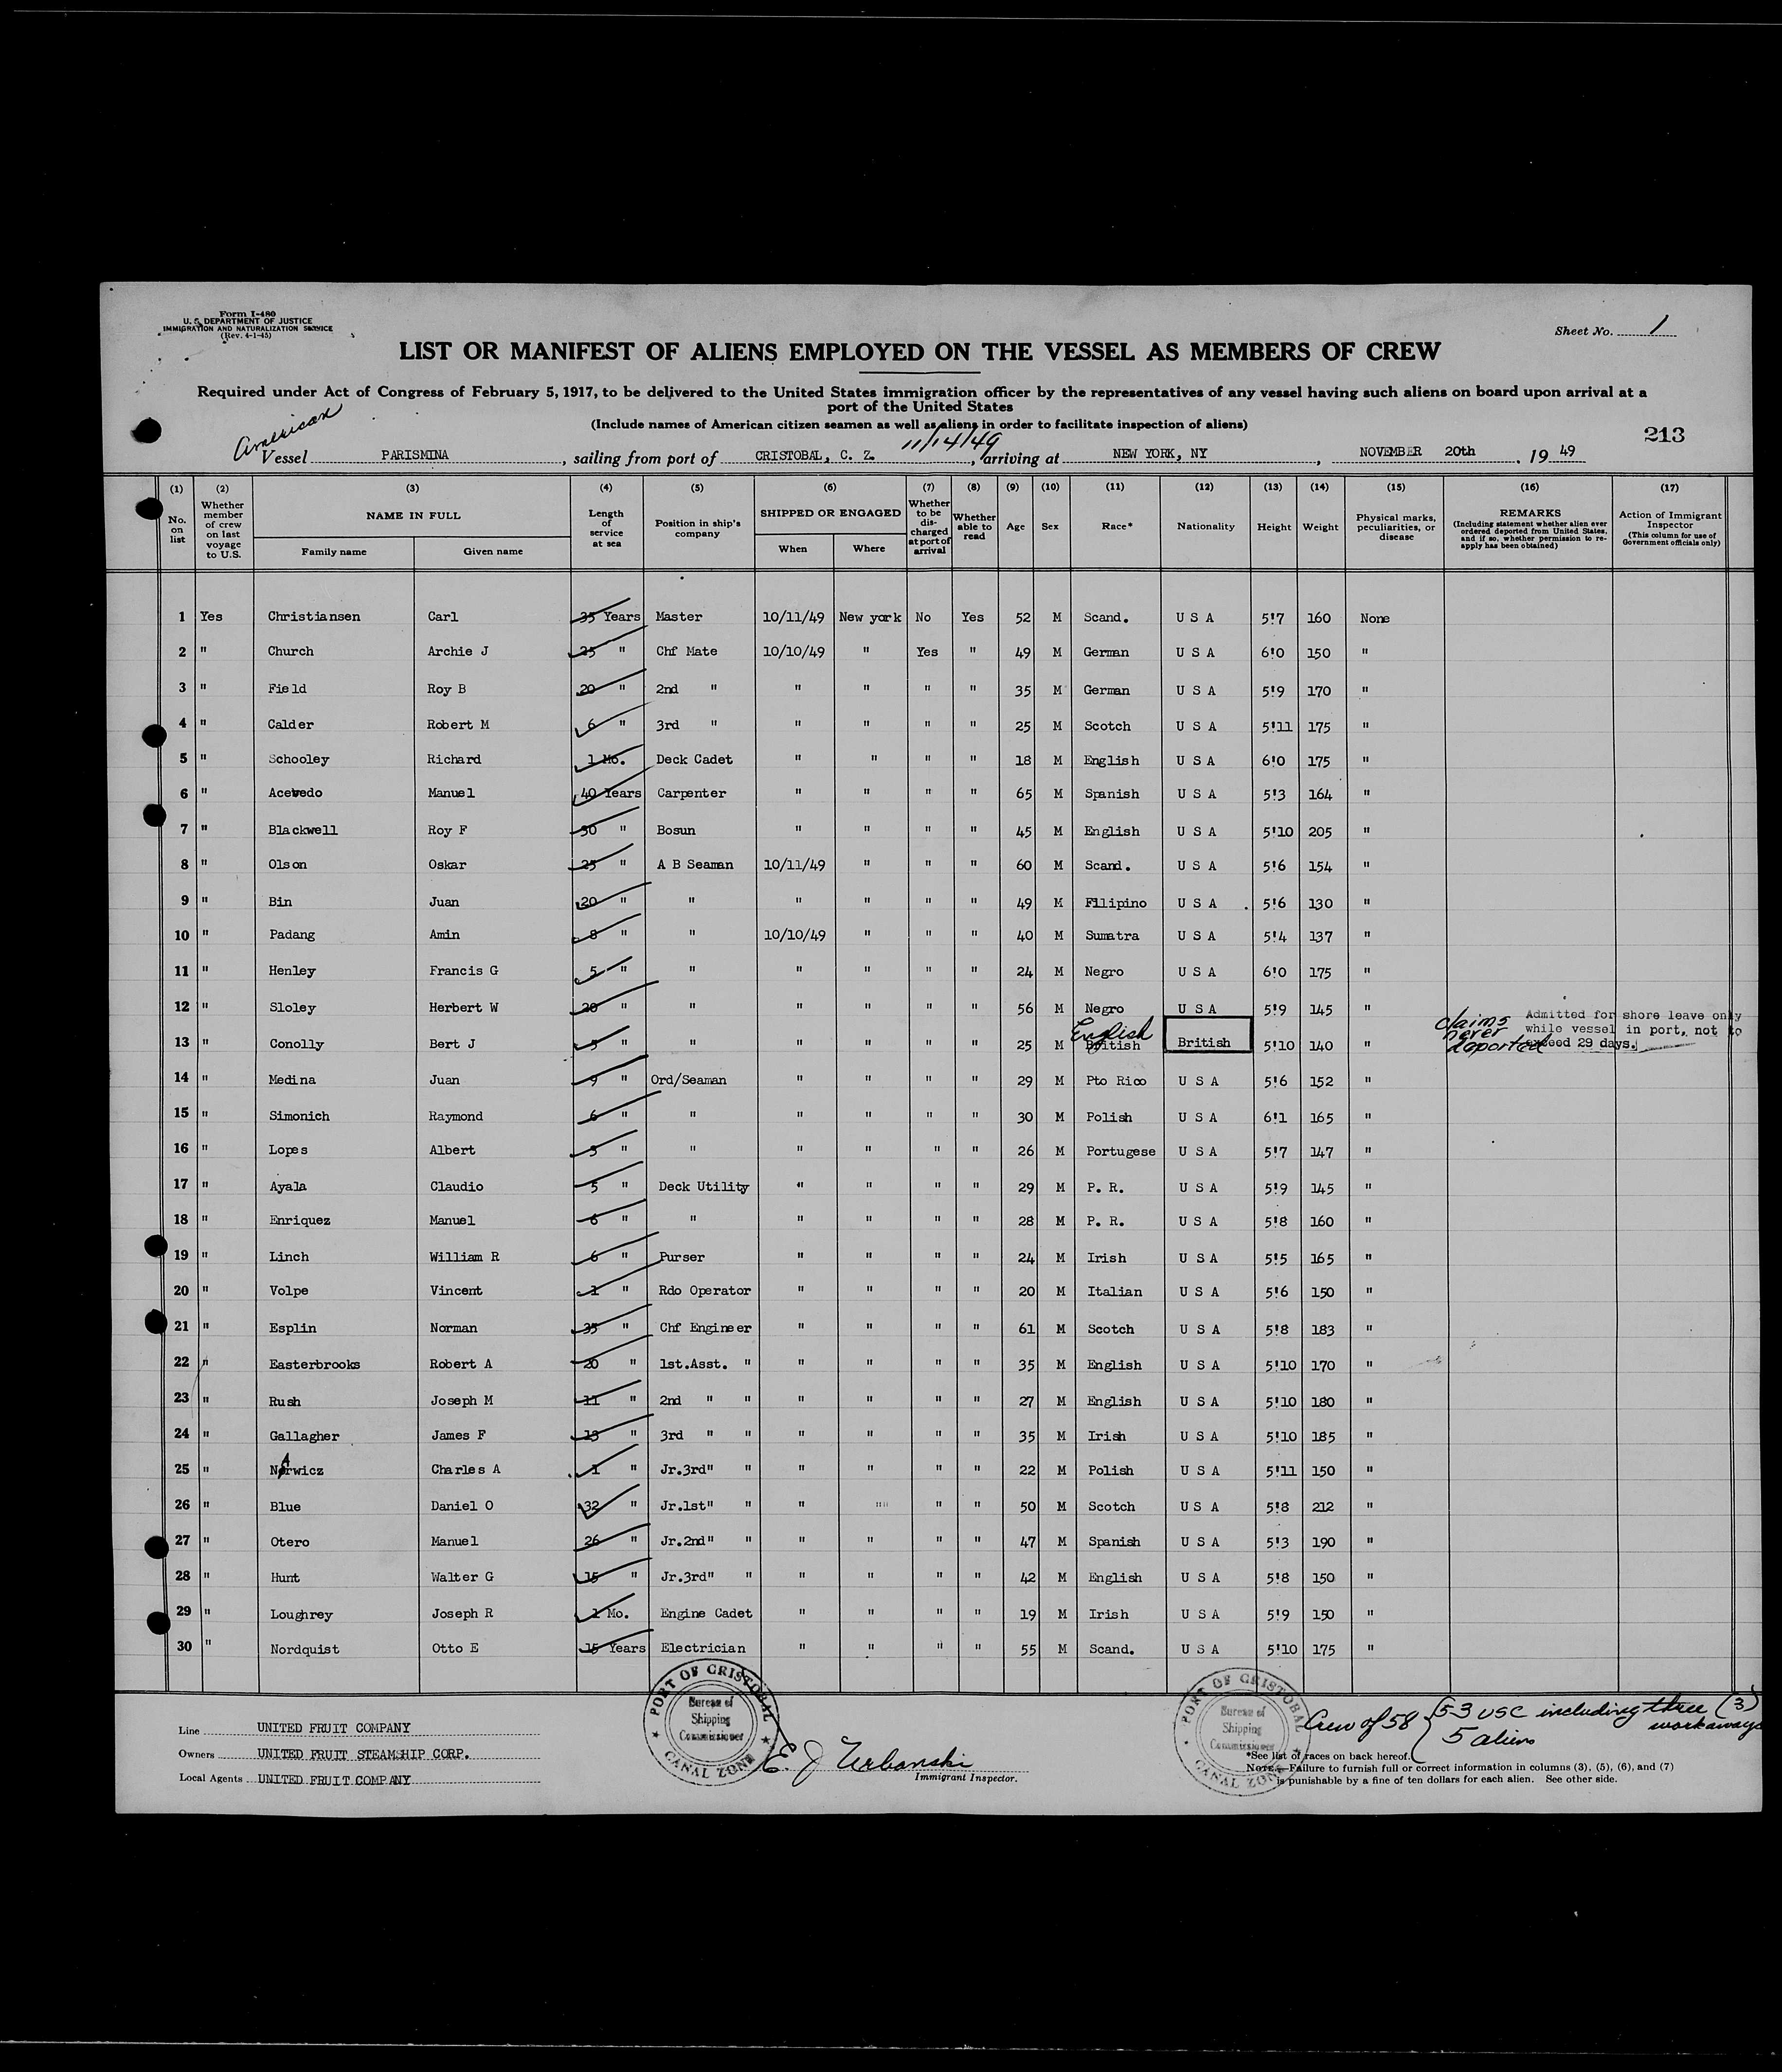 Form I-480
U. S. DEPARTMENT OF JUSTICE
IMMIGRATION AND NATURALIZATION SERVICE
(Rev. 4-1-45)
Sheet No. 1
LIST OR MANIFEST OF ALIENS EMPLOYED ON THE VESSEL AS MEMBERS OF CREW
Required under Act of Congress of February 5, 1917, to be delivered to the United States immigration officer by the representatives of any vessel having such aliens on board upon arrival at a
port of the United States
(Include names of American citizen seamen as well as aliens in order to facilitate inspection of aliens)
213
American
11/14/49
Vessel PARISMINA, sailing from port of CRISTOBAL, C. Z., arriving at NEW YORK, NY, NOVEMBER 20th, 19 49
(1) No. on list
(2) Whether member of crew on last voyage to U.S.
(3) NAME IN FULL Family name Given name
(4) Length of service at sea
(5) Position in ship's company
(6) SHIPPED OR ENGAGED When Where
(7) Whether to be discharged at port of arrival
(8) Whether able to read
(9) Age
(10) Sex
(11) Race*
(12) Nationality
(13) Height
(14) Weight
(15) Physical marks, peculiarities, or disease
(16) REMARKS (Including statement whether alien ever ordered deported from United States, and if so, whether permission to re-apply has been obtained)
(17) Action of Immigrant Inspector (This column for use of Government officials only)
1 Yes Christiansen Carl 35 Years Master 10/11/49 New york No Yes 52 M Scand. U S A 5'7 160 None
2 " Church Archie J 25 " Chf Mate 10/10/49 " Yes " 49 M German U S A 6'0 150 "
3 " Field Roy B 20 " 2nd " " " " " 35 M German U S A 5'9 170 "
4 " Calder Robert M 6 " 3rd " " " " " 25 M Scotch U S A 5'11 175 "
5 " Schooley Richard 1 Mo. Deck Cadet " " " " 18 M English U S A 6'0 175 "
6 " Acevedo Manuel 40 Years Carpenter " " " " 65 M Spanish U S A 5'3 164 "
7 " Blackwell Roy F 30 " Bosun " " " " 45 M English U S A 5'10 205 "
8 " Olson Oskar 25 " A B Seaman 10/11/49 " " " 60 M Scand. U S A 5'6 154 "
9 " Bin Juan 20 " " " " " " 49 M Filipino U S A 5'6 130 "
10 " Padang Amin 8 " " 10/10/49 " " " 40 M Sumatra U S A 5'4 137 "
11 " Henley Francis G 5 " " " " " " 24 M Negro U S A 6'0 175 "
12 " Sloley Herbert W 20 " " " " " " 56 M Negro U S A 5'9 145 "
13 " Conolly Bert J 5 " " " " " " 25 M British English British 5'10 140 " claims never deported Admitted for shore leave only while vessel in port, not to exceed 29 days.
14 " Medina Juan 9 " Ord/Seaman " " " " 29 M Pto Rico U S A 5'6 152 "
15 " Simonich Raymond 6 " " " " " " 30 M Polish U S A 6'1 165 "
16 " Lopes Albert 3 " " " " " " 26 M Portugese U S A 5'7 147 "
17 " Ayala Claudio 5 " Deck Utility " " " " 29 M P. R. U S A 5'9 145 "
18 " Enriquez Manuel 6 " " " " " " 28 M P. R. U S A 5'8 160 "
19 " Linch William R 6 " Purser " " " " 24 M Irish U S A 5'5 165 "
20 " Volpe Vincent 1 " Rdo Operator " " " " 20 M Italian U S A 5'6 150 "
21 " Esplin Norman 35 " Chf Engineer " " " " 61 M Scotch U S A 5'8 183 "
22 " Easterbrooks Robert A 20 " 1st.Asst. " " " " " 35 M English U S A 5'10 170 "
23 " Rush Joseph M 11 " 2nd " " " " " " 27 M English U S A 5'10 180 "
24 " Gallagher James F 13 " 3rd " " " " " " 35 M Irish U S A 5'10 185 "
25 " Narwicz Charles A 1 " Jr.3rd" " " " " " 22 M Polish U S A 5'11 150 "
26 " Blue Daniel O 32 " Jr.1st" " " "" " " 50 M Scotch U S A 5'8 212 "
27 " Otero Manuel 26 " Jr.2nd" " " " " " 47 M Spanish U S A 5'3 190 "
28 " Hunt Walter G 15 " Jr.3rd" " " " " " 42 M English U S A 5'8 150 "
29 " Loughrey Joseph R 1 Mo. Engine Cadet " " " " 19 M Irish U S A 5'9 150 "
30 " Nordquist Otto E 15 Years Electrician " " " " 55 M Scand. U S A 5'10 175 "
Line UNITED FRUIT COMPANY
Owners UNITED FRUIT STEAMSHIP CORP.
Local Agents UNITED FRUIT COMPANY
PORT OF CRISTOBAL
Bureau of
Shipping
Commissioner
CANAL ZONE
E. J Urbanski
Immigrant Inspector.
PORT OF CRISTOBAL
Bureau of
Shipping
Commissioner
CANAL ZONE
Crew of 58 { 53 USC including three (3) workaways
5 aliens
*See list of races on back hereof.
NOTE.—Failure to furnish full or correct information in columns (3), (5), (6), and (7)
is punishable by a fine of ten dollars for each alien. See other side.